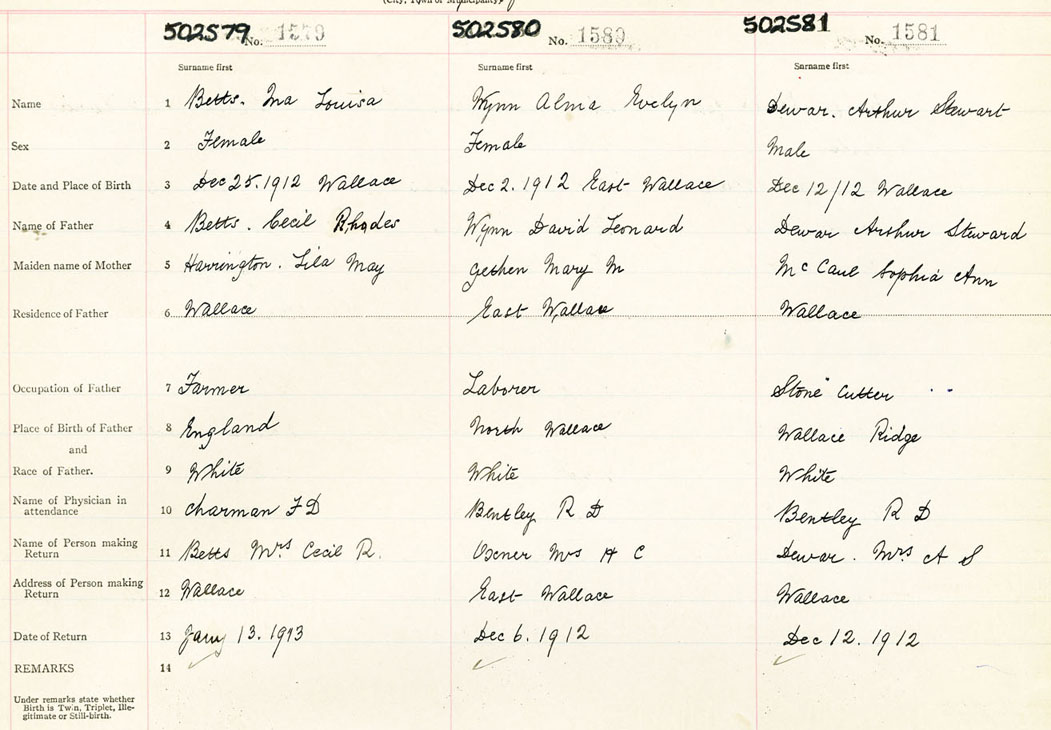 (City, Town or Municipality)
502579 No. 1579 502580 No. 1580 502581 No. 1581
Surname first Surname first Surname first
Name 1 Betts. Ina Louisa Wynn Alma Evelyn Dewar. Arthur Stewart
Sex 2 Female Female Male
Date and Place of Birth 3 Dec 25. 1912 Wallace Dec 2. 1912 East Wallace Dec 12/12 Wallace
Name of Father 4 Betts. Cecil Rhodes Wynn David Leonard Dewar Arthur Steward
Maiden name of Mother 5 Harrington. Lila May Mary M McCaul Sophia Ann
Residence of Father 6 Wallace East Wallace Wallace
Occupation of Father 7 Farmer Laborer Stone Cutter
Place of Birth of Father 8 England North Wallace Wallace Ridge
and
Race of Father. 9 White White White
Name of Physician in
attendance 10 Charman F D Bentley R D Bentley R D
Name of Person making
Return 11 Betts Mrs Cecil R. Mrs H C Dewar. Mrs A S
Address of Person making
Return 12 Wallace East Wallace Wallace
Date of Return 13 Jany 13. 1913 Dec 6. 1912 Dec 12. 1912
REMARKS 14
Under remarks state whether
Birth is Twin, Triplet, Ille-
gitimate or Still-birth.